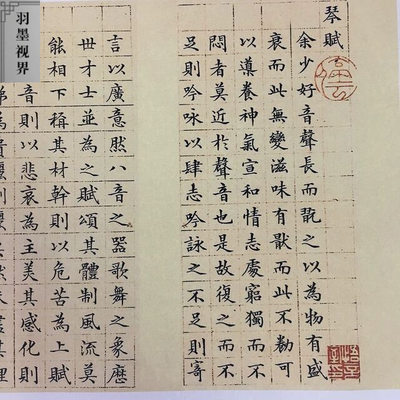 羽墨視界
琴賦
余少好音聲長而翫之以為物有盛
衰而此無變滋味有猒而此不勌可
以導養神氣宣和情志處窮獨而不
悶者莫近於聲音也是故復之而不
足則吟咏以肆志吟詠之不足則寄
言以廣意然八音之器歌舞之象歷
丗才士並為之賦頌其體制風流莫
能相下稱其材幹則以危苦為上賦
音則以悲哀為主美其感化則
為貴麗則